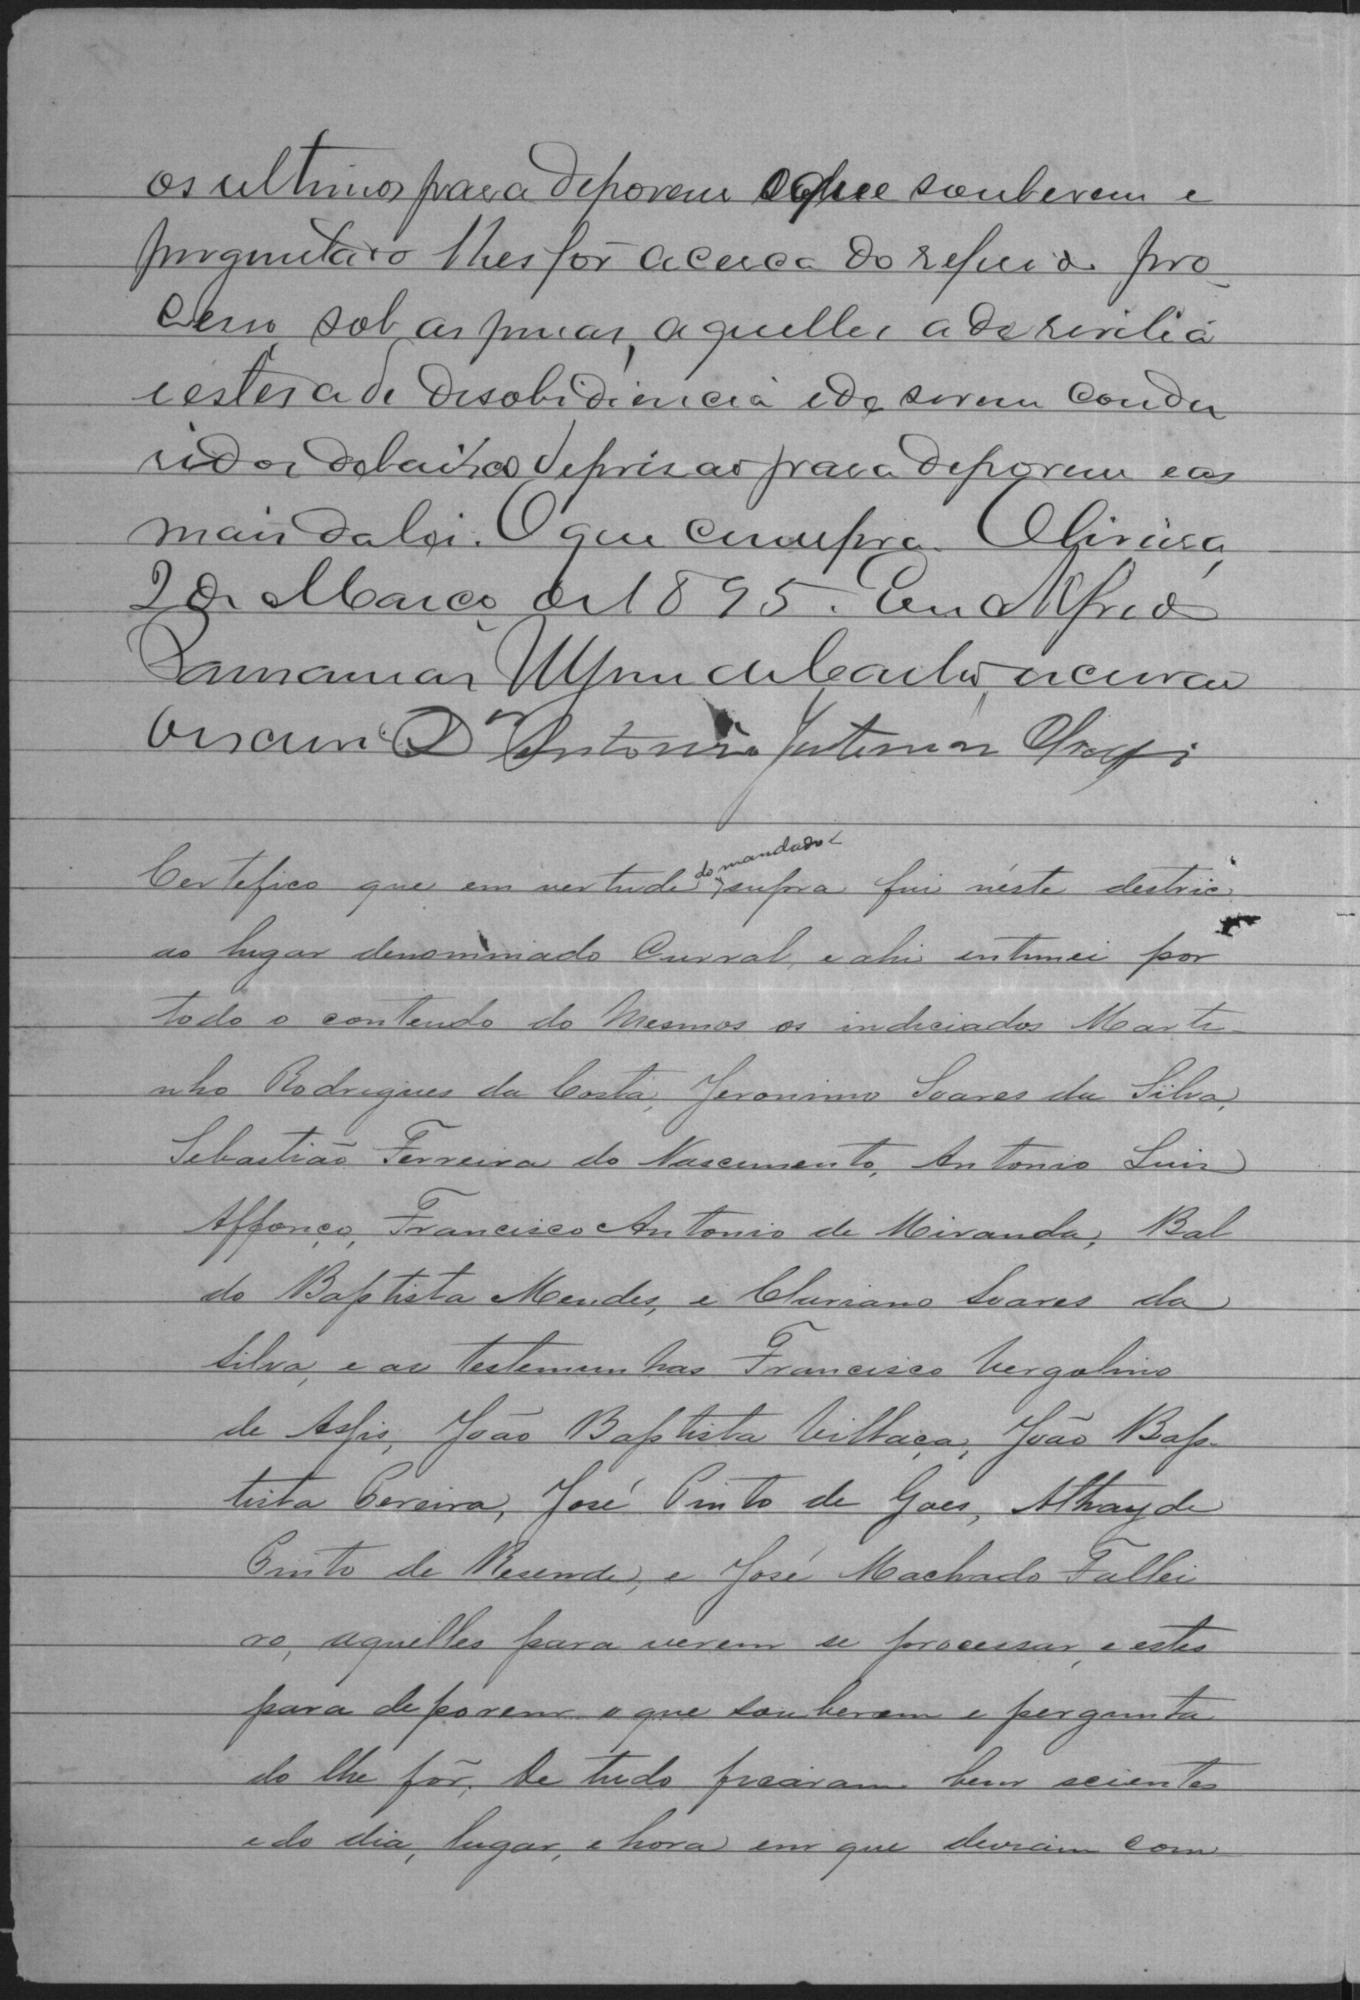 os ultimos para deporem o que souberem e
perguntado lhes fôr acerca do referido pro-
cesso, sob as penas, aquelles a de revelia
e estes a de desobidiencia e de serem condu
sidos debaixo de prisao para deporem e as
mais da lei. O que cumpra. Oliveira,
2 de Março de 1895. Eu Alfredo
de Castro, escrivão
escrevi Dr Antonio Justiniano
Certefico que em vertude do mandado supra fui néste destric
ao lugar denominado Curral, e ahi intimei por
todo o conteudo do mesmos os indiciados Marti-
nho Rodrigues da Costa, Jeronimo Soares da Silva,
Sebastião Ferreira do Nascimento, Antonio Luis
Affonço, Francisco Antonio de Miranda, Bal
do Baptista Mendes, e Soares da
Silva, e as testemunhas Francisco Vergolino
de Assis, João Baptista Villaça, João Bap-
tista Pereira, José Pinto de Goes, Athayde
Pinto de Resende, e José Machado Fallei
ro, aquelles para verem se processar, e estes
para deporem o que souberem e pergunta
do lhe fôr, De tudo ficaram bem scientes
e do dia, lugar, e hora em que deviam com